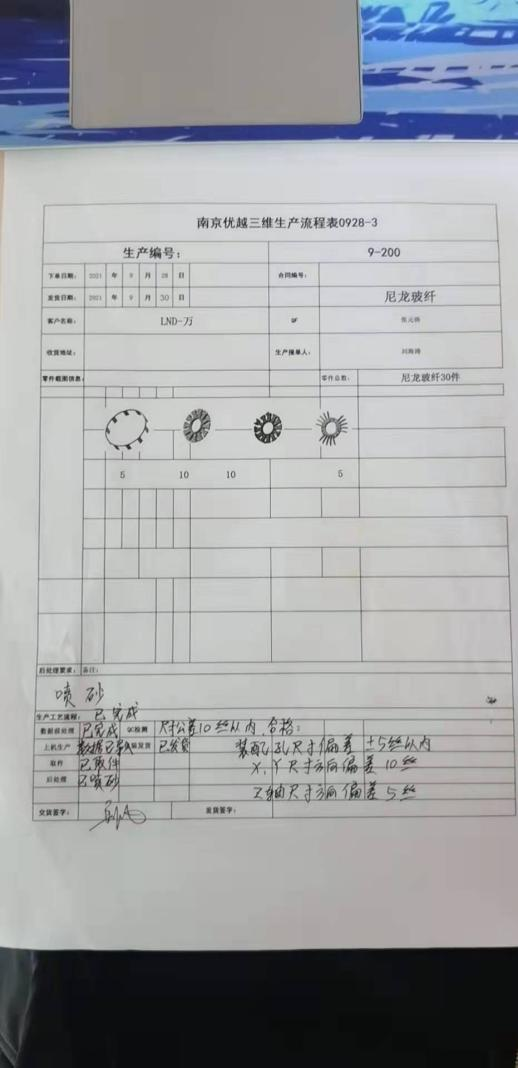 南京优越三维生产流程表0928-3
生产编号: 9-200
下单日期: 2021 年 9 月 28 日 合同编号:
发货日期: 2021 年 9 月 30 日 尼龙玻纤
客户名称: LND-万
收货地址: 生产接单人:
零件截图信息: 零件总数: 尼龙玻纤30件
5 10 10 5
后处理要求: 备注:
喷砂
生产工艺流程: 已完成
数据前处理 已完成 QC检测 尺寸公差10丝以内,合格:
上机生产 数据已导入 发货 已发货 装配孔尺寸偏差 ±5丝以内
取件 已取件 X,Y尺寸方向偏差10丝
后处理 已喷砂
Z轴尺寸方向偏差5丝
交货签字: 发货签字: